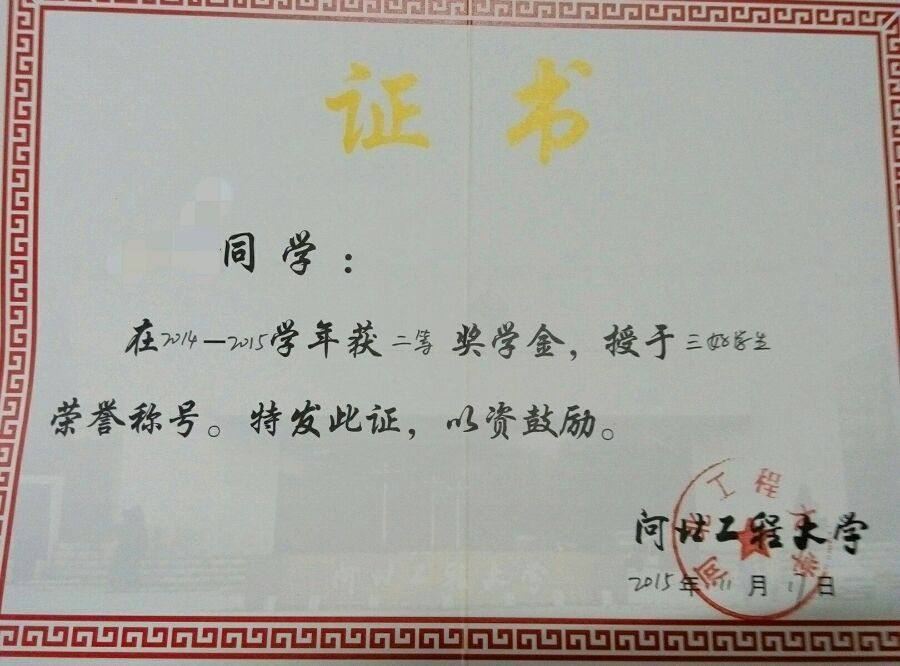 证书
同学：
在2014—2015学年获二等奖学金，授于三好学生
荣誉称号。特发此证，以资鼓励。
河北工程大学
2015年11月17日
河北工程大学